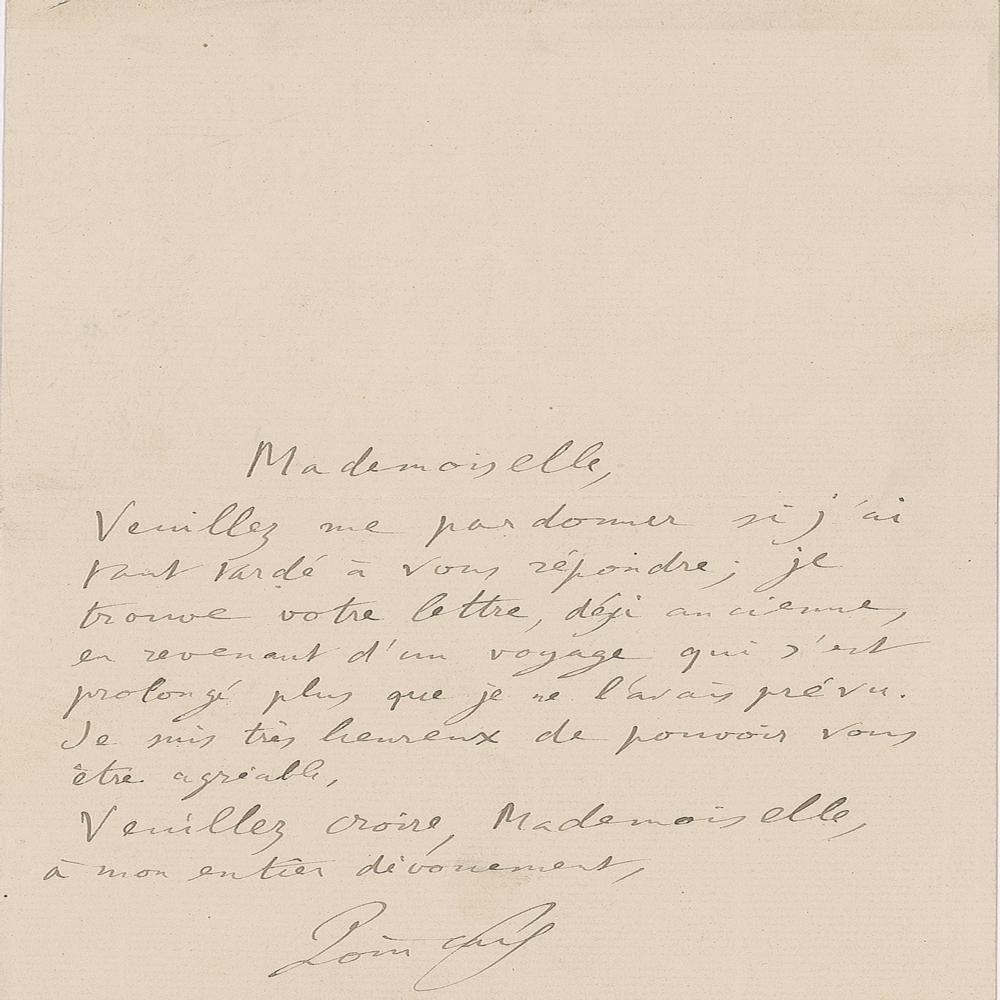 Mademoiselle,
Veuillez me pardonner si j'ai
tant tardé à vous répondre; je
trouve votre lettre, déjà ancienne,
en revenant d'un voyage qui s'est
prolongé plus que je ne l'avais prévu.
Je suis très heureux de pouvoir vous
être agréable,
Veuillez croire, Mademoiselle,
à mon entier dévouement,
Poincaré